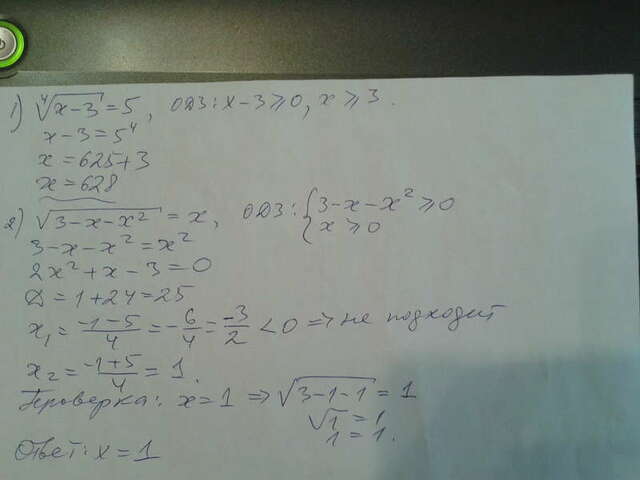 1) ⁴√(x-3) = 5, ОДЗ: x-3 ≥ 0, x ≥ 3.
x-3 = 5⁴
x = 625+3
x = 628
2) √(3-x-x²) = x, ОДЗ: { 3-x-x² ≥ 0
x ≥ 0
3-x-x² = x²
2x²+x-3 = 0
D = 1+24 = 25
x₁ = (-1-5)/4 = -6/4 = -3/2 < 0 ⇒ не подходит
x₂ = (-1+5)/4 = 1.
Проверка: x=1 ⇒ √(3-1-1) = 1
√1 = 1
1 = 1.
Ответ: x = 1